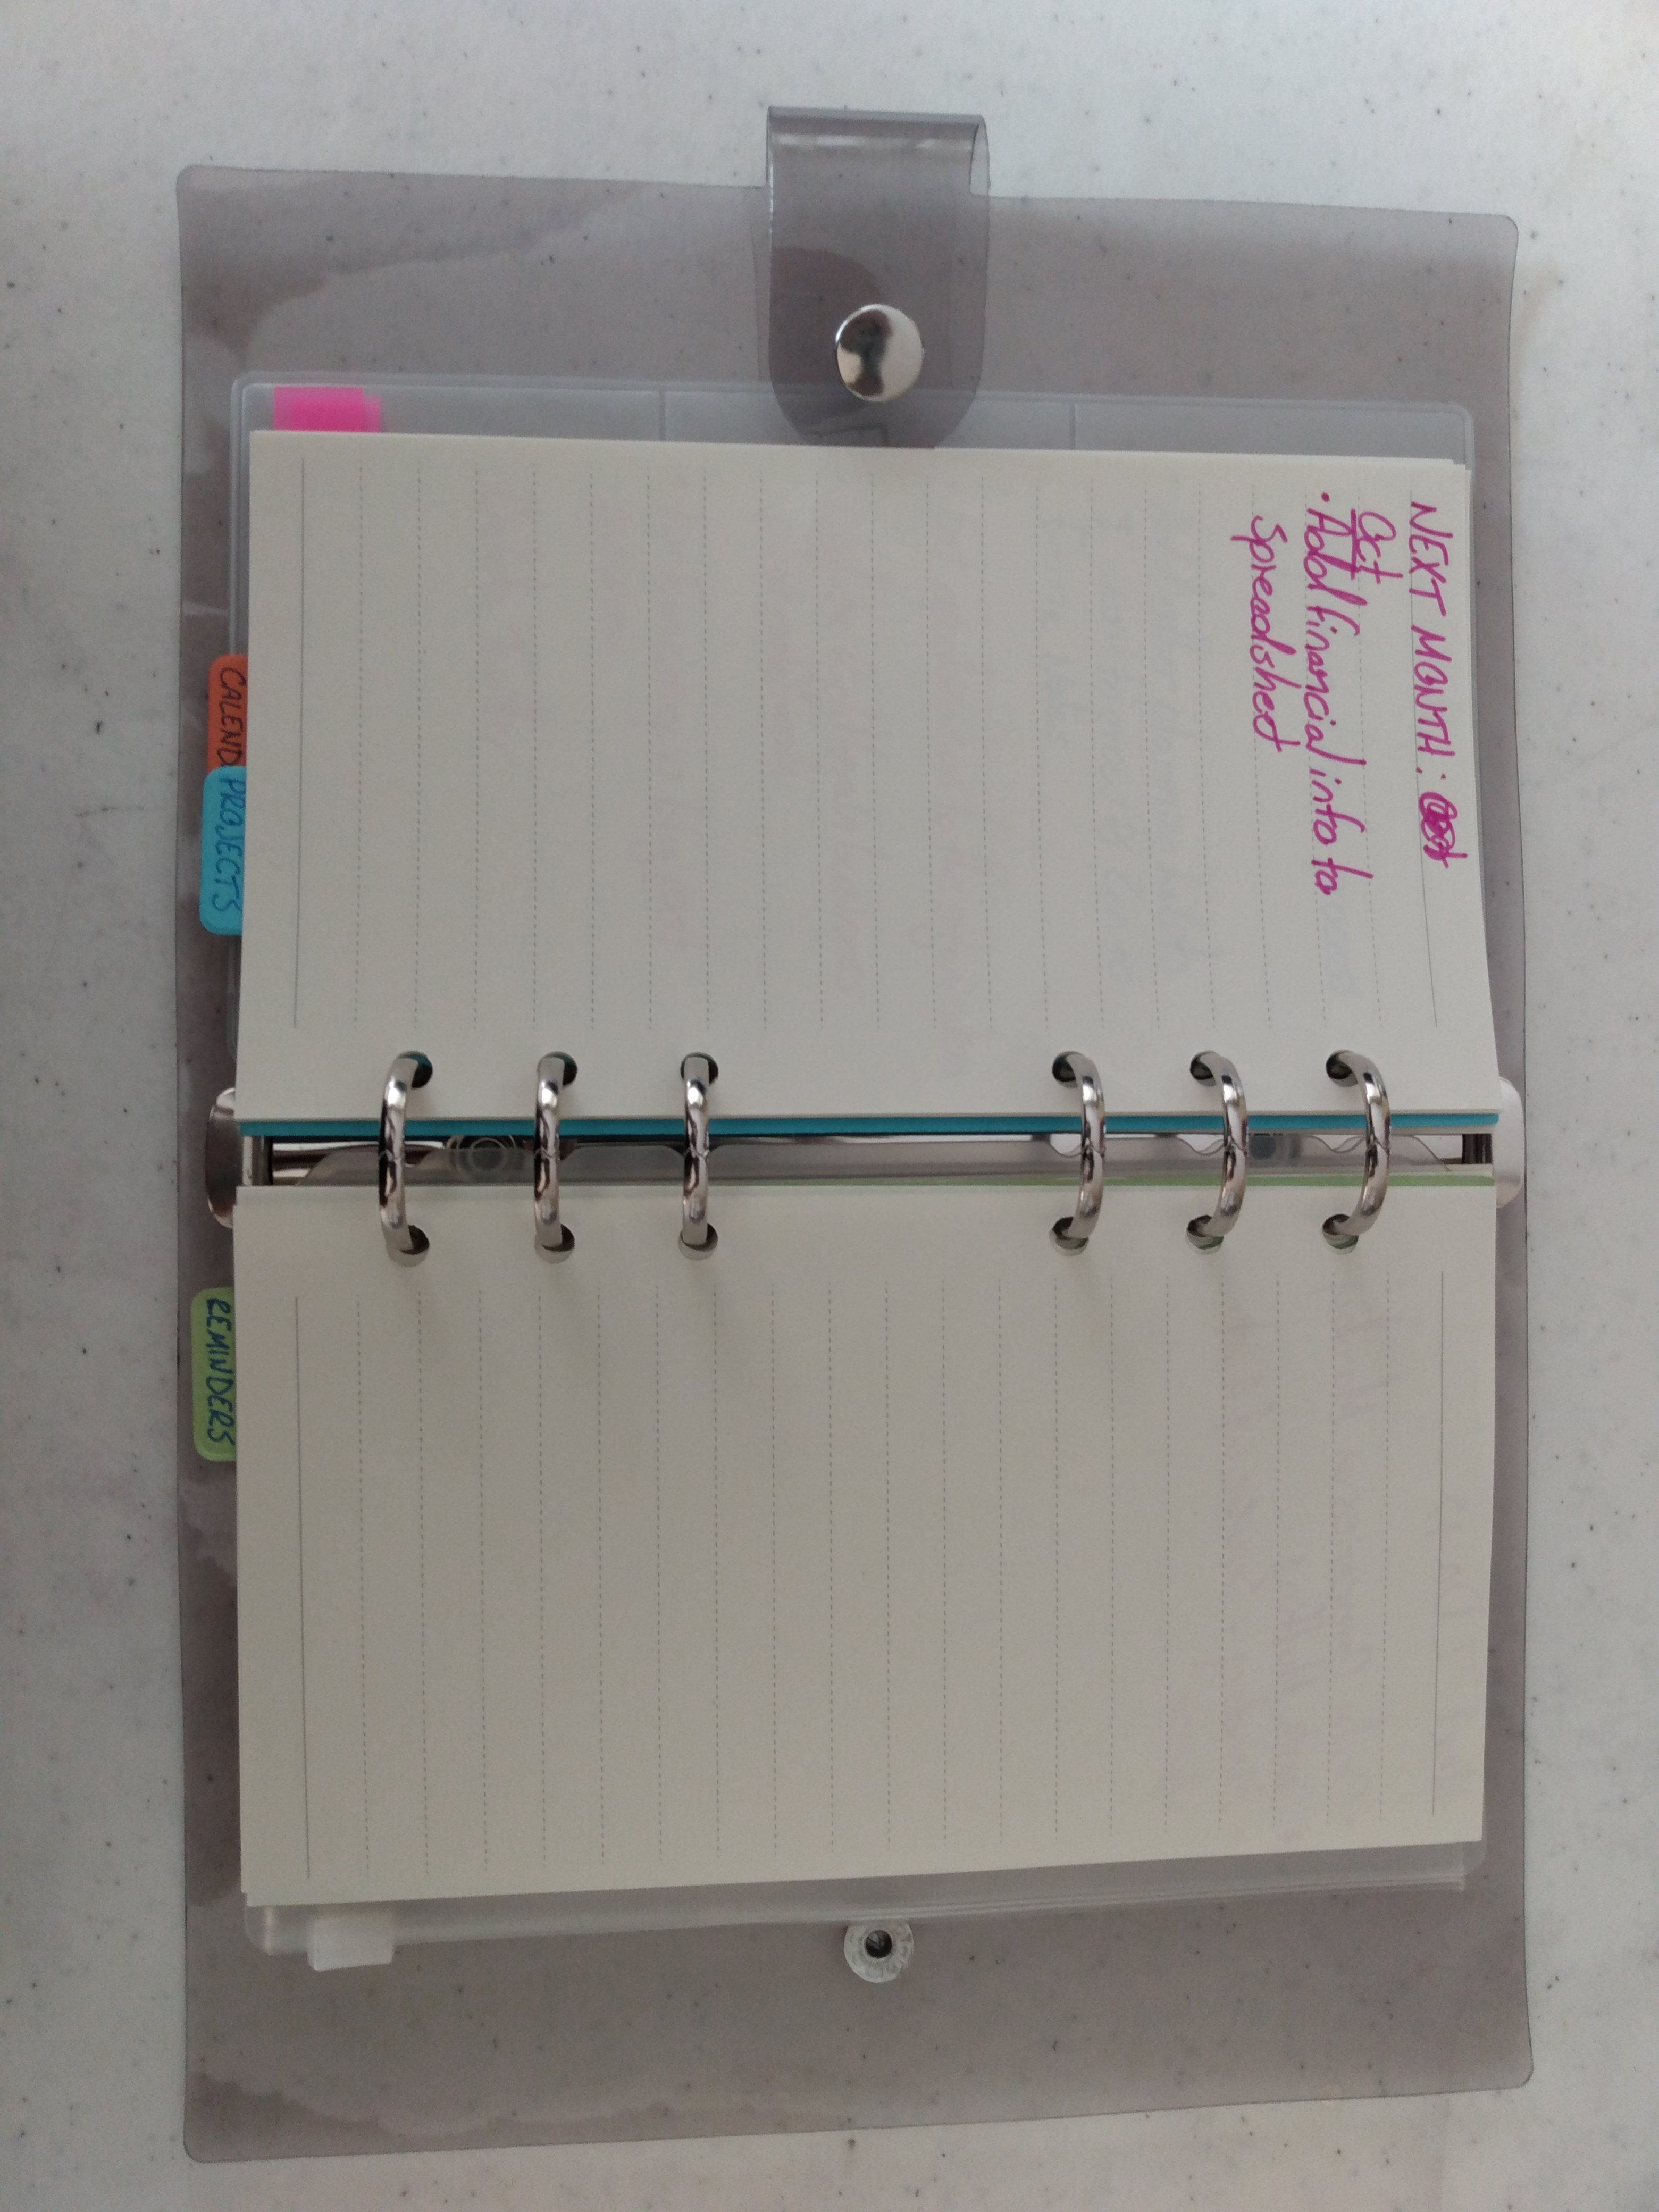 NEXT MONTH:
Oct
• Add financial info to
Spreadsheet
CALEND
PROJECTS
REMINDERS